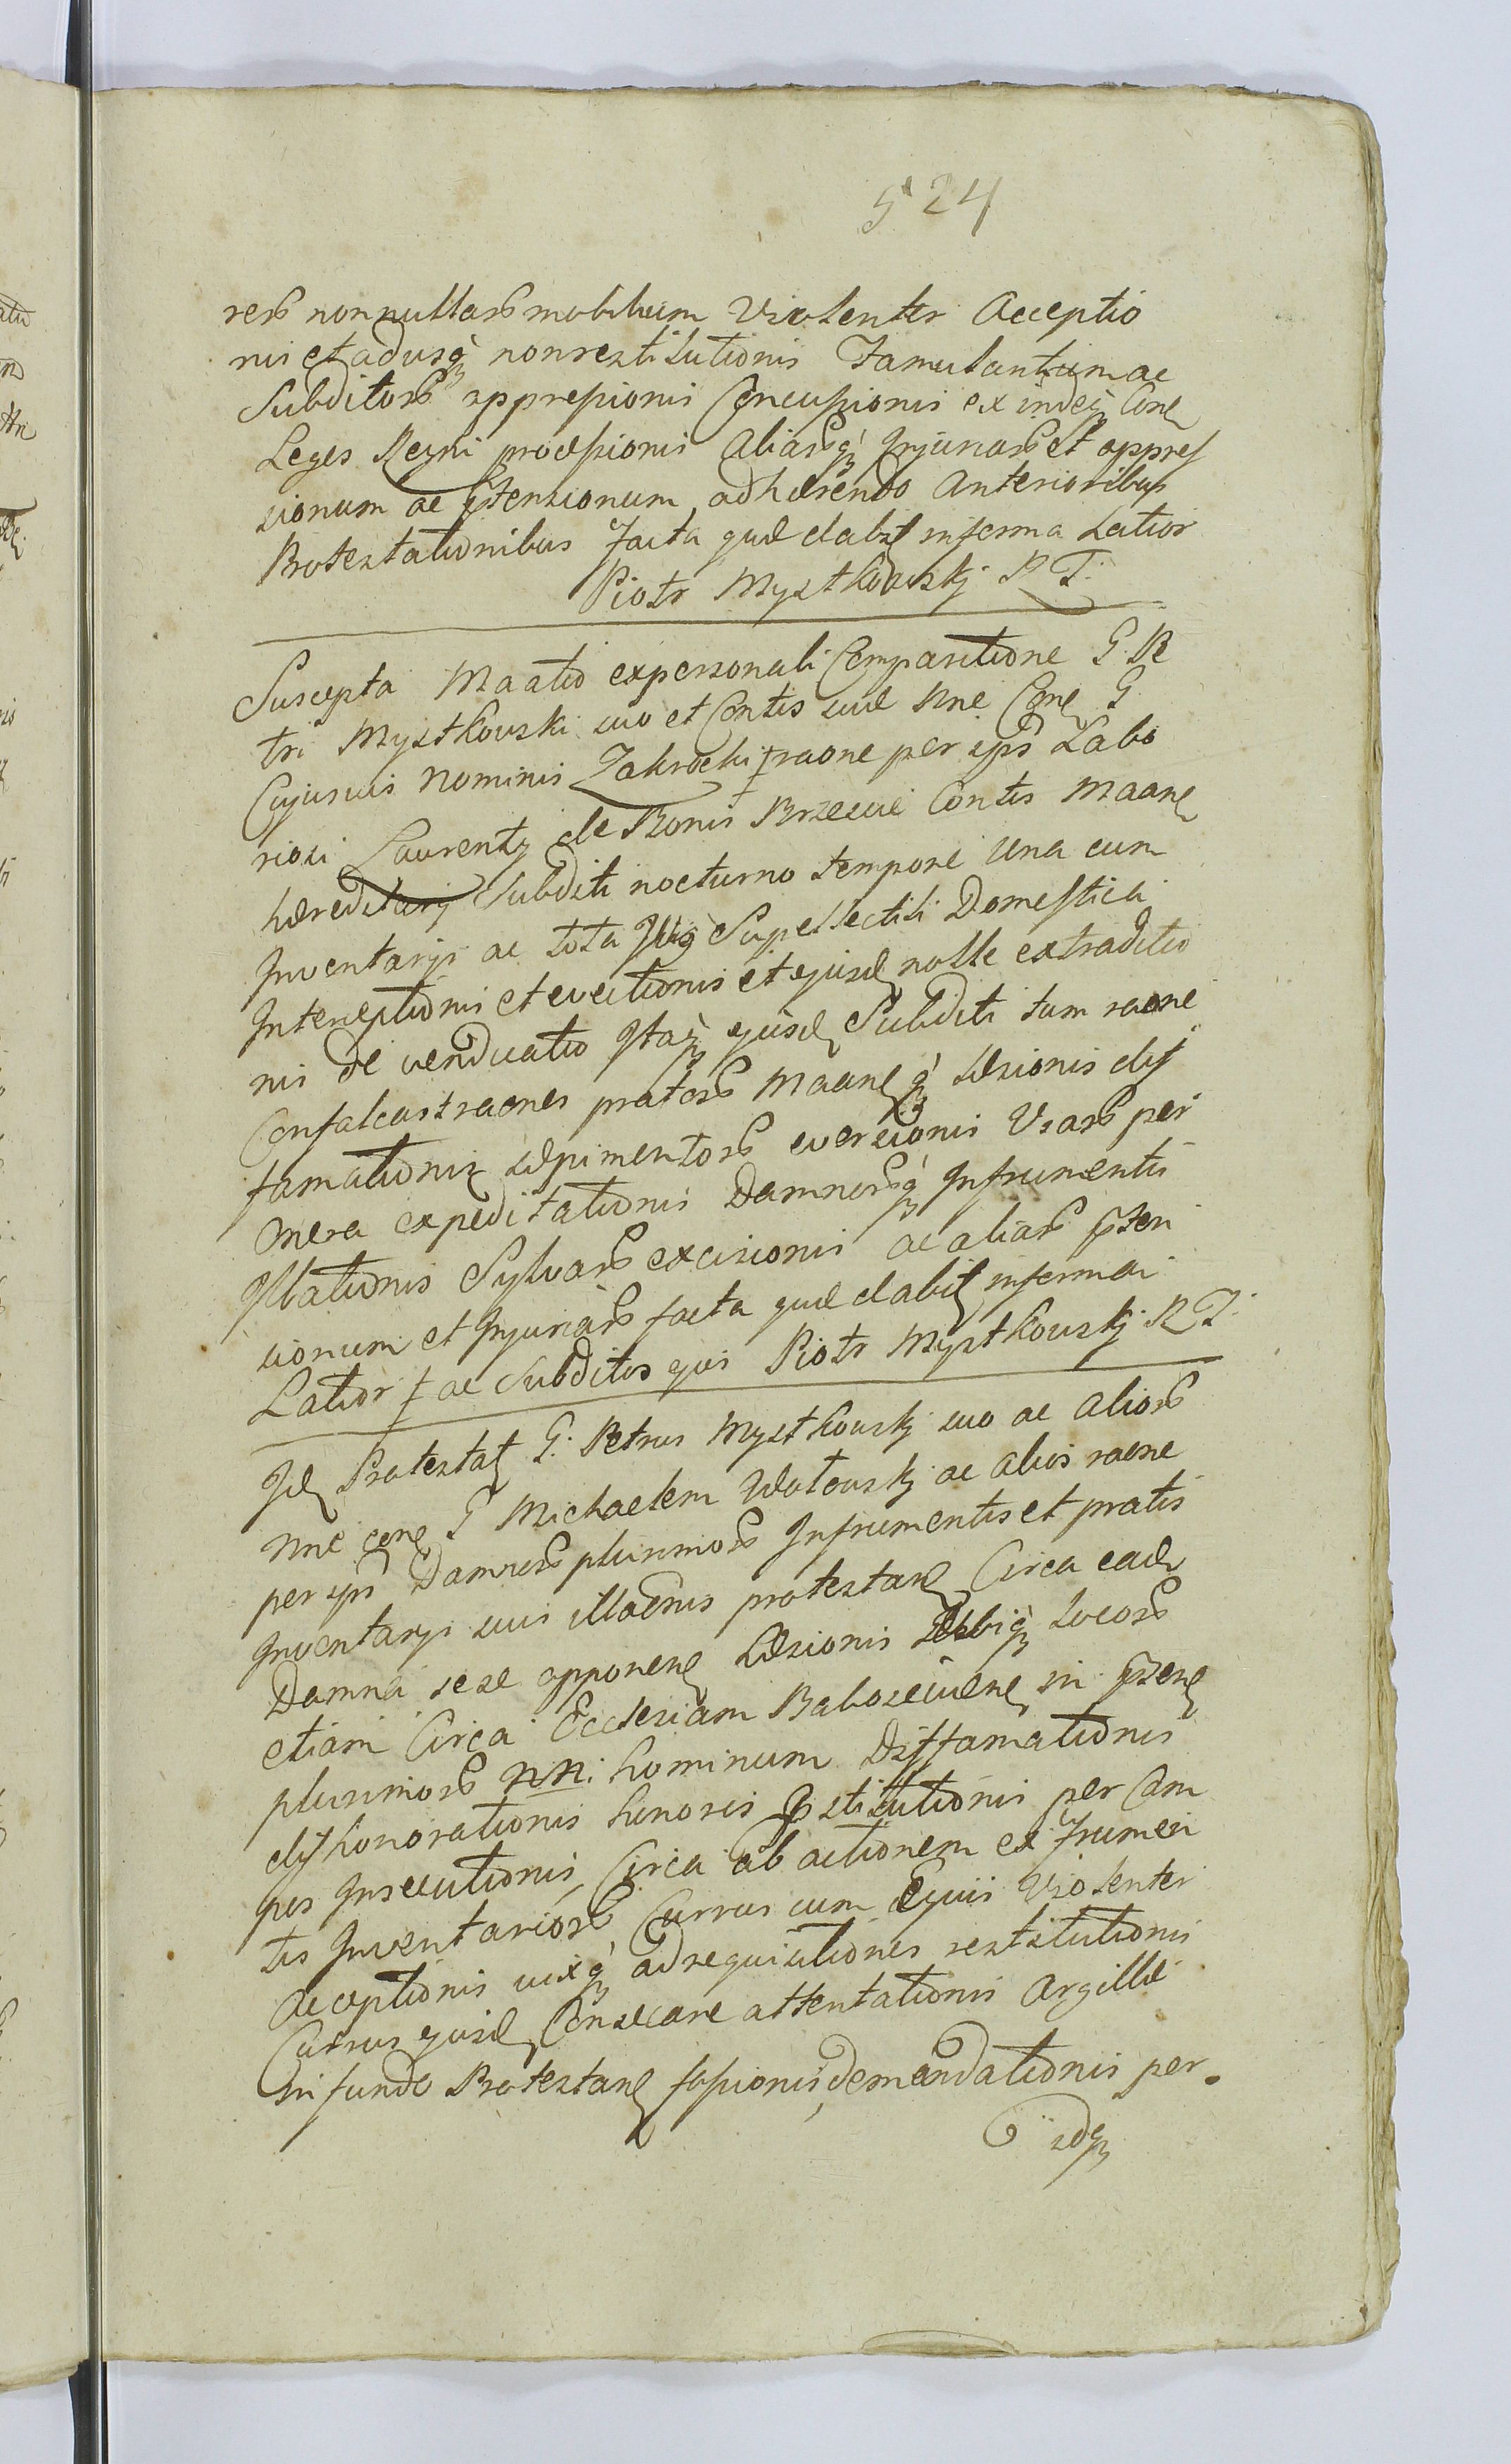 524
rers nonnullars mobilium Violenter Acceptio
nis et adusq nonrestitutionis Famulantium ac
Subditors oppressionis Concussionis ex indeq Con
Leges Regni processionis Aliarsq Injuriars et oppres
sionum ac pstensionum adhærendo Anterioribus
Protestationibus facta quæ dabit in forma Latior
Piotr Mystkowskj P T:
Suscepta Maatio ex personali Comparitione G. Pe
tri Mystkowski suo et Contis suæ nne Con G
Cujusvis Nominis Zakrocki ‡ raone per eps Labo
riosi Laurentij de Bonis Brzescie Contis Maan
hæreditarij Subditi nocturno tempore una cum
Inventarijs ac tota Supellectili Domestica
Interceptionis et evectionis et ejusd nolle extraditio
nis de venducatio Itaq ejusd Subditi tum raone
Confalcast raones prators Maan q læsionis dif
famationis sæpimentors eversionis Viars per
Onera expeditationis Damnorsq In frumentis
Illationis Sylvars excisionis ac aliars psten
sionum et Injuriars facta quæ dabit in forma
Latior ‡ ac Subditos ejus Piotr Mystkowskj P T:
Id Protestat G: Petrus Mystkowskj suo ac aliors
nne con G Michaelem ac alios raone
per eps Damnors plurimors In frumentis et pratis
Inventarijs suis illaonis protestan Circa ead
Damna sese opponen læsionis locors
etiam Circa Ecclesiam in psen
plurimors nn. hominum Diffamationis
dishonorationis honoris pstitutionis per Cam
pos Insecutionis, Circa ab actionem ex frumen
tis Inventariors Currus cum Equis Violenter
Acceptionis vixq ad requisitiones restitutionis
Currus ejusd Consecare attentationis Argillæ
In fundo Protestan fossionis, demandationis per.
sdq